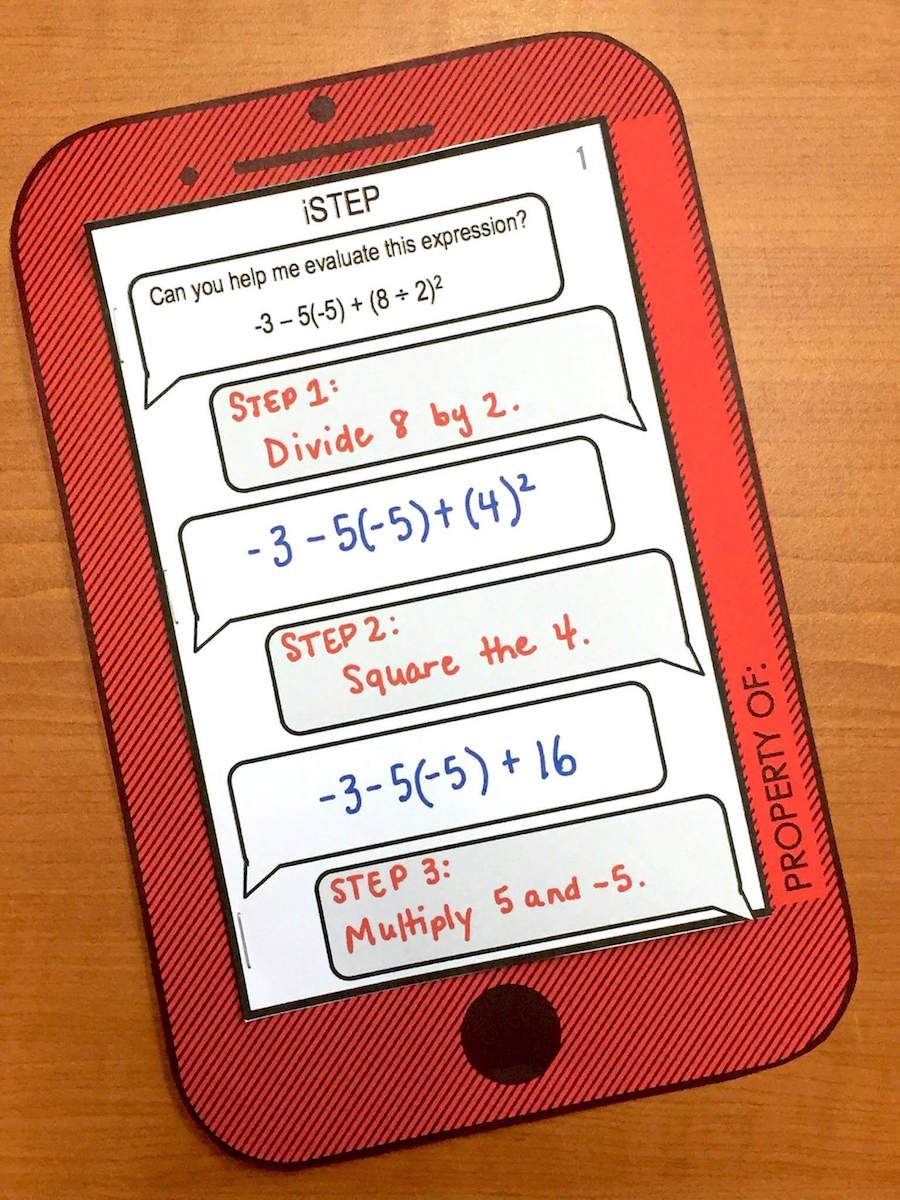 1
iSTEP
Can you help me evaluate this expression?
-3 – 5(-5) + (8 ÷ 2)²
STEP 1:
Divide 8 by 2.
-3-5(-5)+(4)²
STEP 2:
Square the 4.
-3-5(-5)+16
STEP 3:
Multiply 5 and -5.
PROPERTY OF: